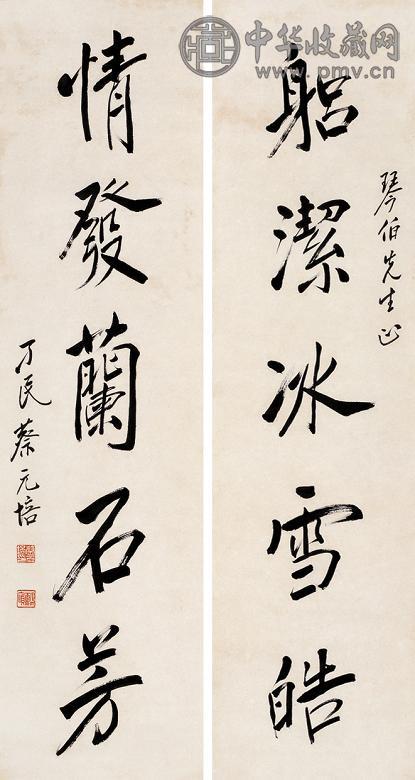 中华收藏网
www.pmv.cn
琴伯先生正
躬潔冰雪皓
情發蘭石芳
孑民蔡元培